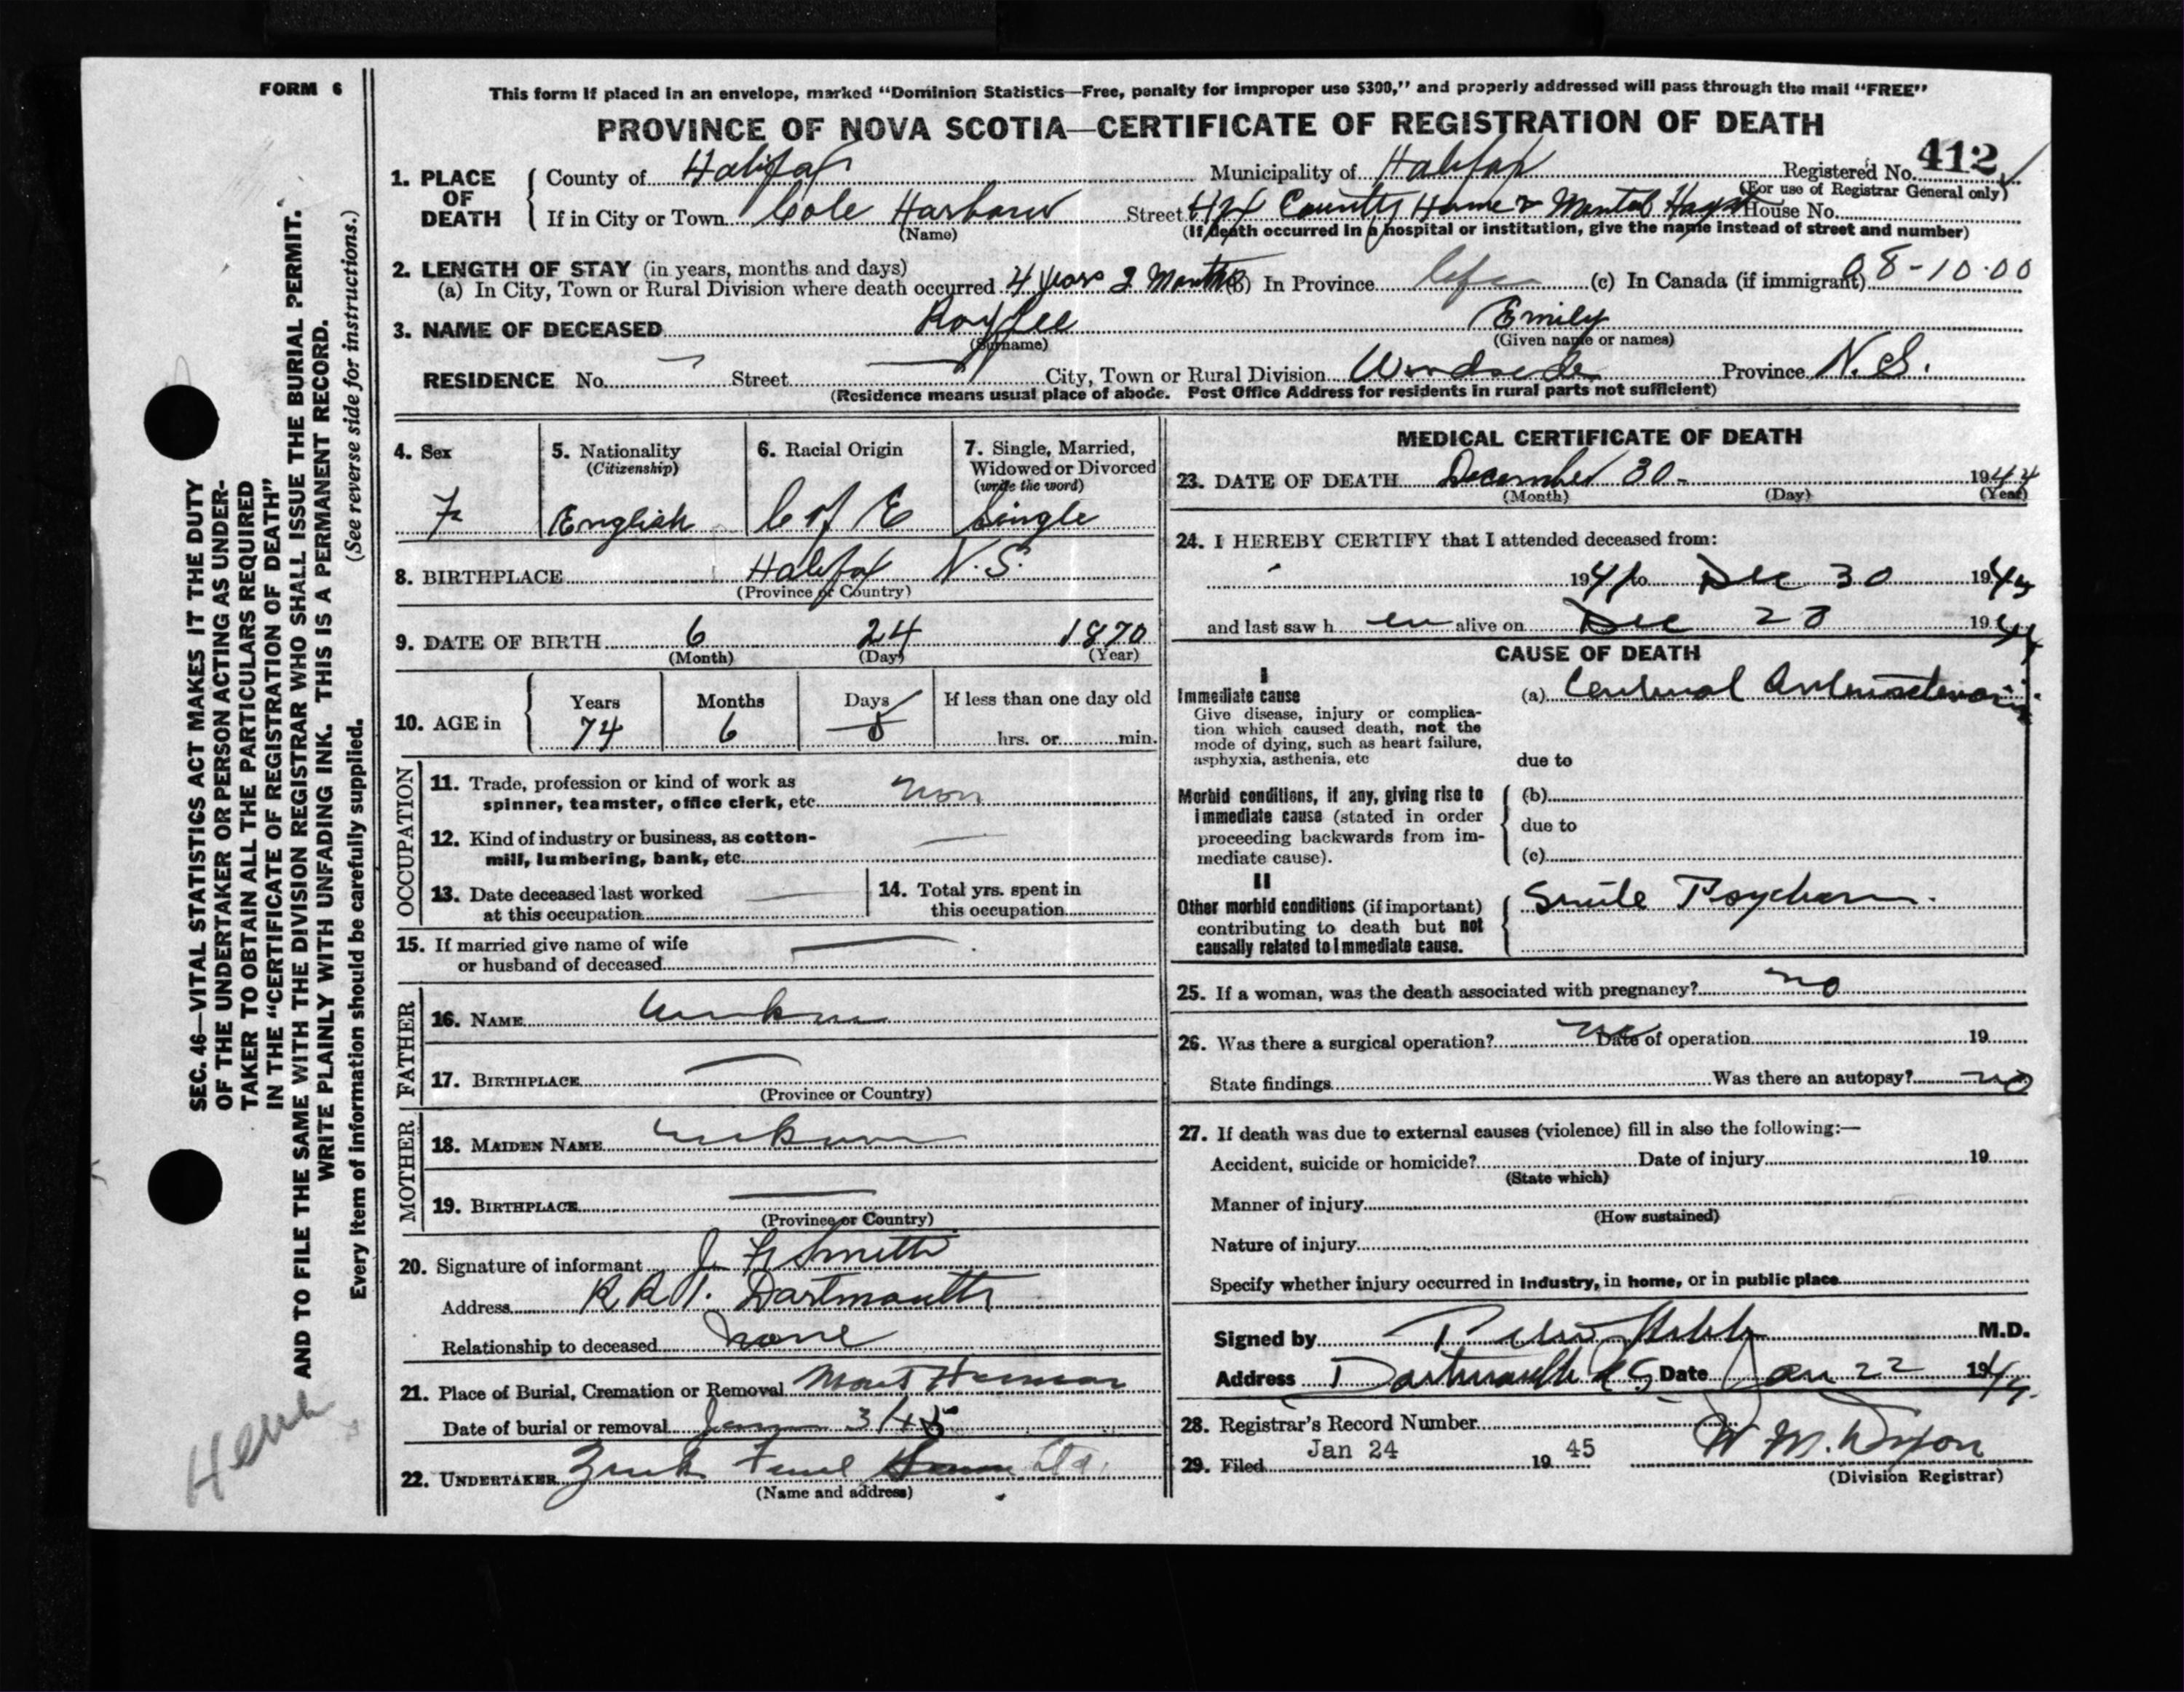 FORM 6
This form if placed in an envelope, marked “Dominion Statistics—Free, penalty for improper use $300,” and properly addressed will pass through the mail “FREE”
PROVINCE OF NOVA SCOTIA—CERTIFICATE OF REGISTRATION OF DEATH
1. PLACE OF DEATH County of Halifax Municipality of Halifax Registered No. 412
(For use of Registrar General only)
If in City or Town Cole Harbour Street Hfx County Home & Mental Hospt House No.
(Name) (If death occurred in a hospital or institution, give the name instead of street and number)
2. LENGTH OF STAY (in years, months and days)
(a) In City, Town or Rural Division where death occurred 4 years 2 Months (b) In Province life (c) In Canada (if immigrant) 08-10-00
3. NAME OF DECEASED Emily
(Surname) (Given name or names)
RESIDENCE No. — Street — City, Town or Rural Division Woodside Province N.S.
(Residence means usual place of abode. Post Office Address for residents in rural parts not sufficient)
4. Sex F
5. Nationality (Citizenship) English
6. Racial Origin C of E
7. Single, Married, Widowed or Divorced (write the word) Single
8. BIRTHPLACE Halifax N.S.
(Province or Country)
9. DATE OF BIRTH 6 24 1870
(Month) (Day) (Year)
10. AGE in Years 74 Months 6 Days If less than one day old hrs. or min.
OCCUPATION
11. Trade, profession or kind of work as spinner, teamster, office clerk, etc. non
12. Kind of industry or business, as cotton-mill, lumbering, bank, etc. —
13. Date deceased last worked at this occupation —
14. Total yrs. spent in this occupation
15. If married give name of wife or husband of deceased —
FATHER
16. NAME unknown
17. BIRTHPLACE —
(Province or Country)
MOTHER
18. MAIDEN NAME unknown
19. BIRTHPLACE —
(Province or Country)
20. Signature of informant J. Smith
Address R R 1. Dartmouth
Relationship to deceased none
21. Place of Burial, Cremation or Removal Mount Herman
Date of burial or removal Jan 3/45
22. UNDERTAKER Ltd.
(Name and address)
MEDICAL CERTIFICATE OF DEATH
23. DATE OF DEATH December 30 - 1944
(Month) (Day) (Year)
24. I HEREBY CERTIFY that I attended deceased from:
1941 to Dec 30 19
and last saw h er alive on Dec 28 1944
CAUSE OF DEATH
I
Immediate cause (a) Cerebral Arteriosclerosis
Give disease, injury or complica-
tion which caused death, not the
mode of dying, such as heart failure,
asphyxia, asthenia, etc due to
Morbid conditions, if any, giving rise to (b)
immediate cause (stated in order due to
proceeding backwards from im-
mediate cause). (c)
II
Other morbid conditions (if important) Senile Psychosis.
contributing to death but not
causally related to immediate cause.
25. If a woman, was the death associated with pregnancy? no
26. Was there a surgical operation? no Date of operation 19
State findings Was there an autopsy? no
27. If death was due to external causes (violence) fill in also the following:—
Accident, suicide or homicide? Date of injury 19
(State which)
Manner of injury
(How sustained)
Nature of injury
Specify whether injury occurred in industry, in home, or in public place
Signed by M.D.
Address Dartmouth N S Date Jan 22 19
28. Registrar's Record Number
29. Filed Jan 24 19 45 W M.
(Division Registrar)
SEC. 46—VITAL STATISTICS ACT MAKES IT THE DUTY
OF THE UNDERTAKER OR PERSON ACTING AS UNDER-
TAKER TO OBTAIN ALL THE PARTICULARS REQUIRED
IN THE “CERTIFICATE OF REGISTRATION OF DEATH”
AND TO FILE THE SAME WITH THE DIVISION REGISTRAR WHO SHALL ISSUE THE BURIAL PERMIT.
WRITE PLAINLY WITH UNFADING INK. THIS IS A PERMANENT RECORD.
Every item of information should be carefully supplied. (See reverse side for instructions.)